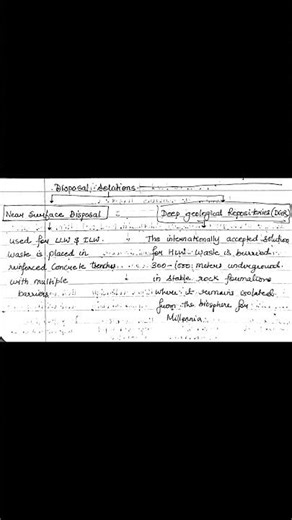 Disposal Solutions
Near Surface Disposal
used for LLW & ILW.
waste is placed in
reinforced Concrete trenches
with multiple
barriers
Deep geological Repositories (DGR)
The internationally accepted solution
for HLW. Waste is burried
300-1000 meters underground
in stable rock foumations
where it remains isolated
from the biosphere for
Millennia.